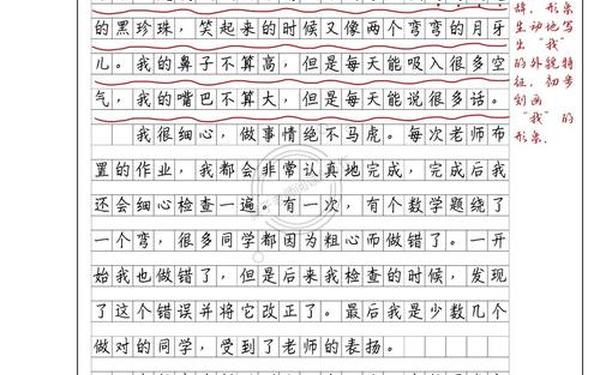 的黑珍珠，笑起来的时候又像两个弯弯的月牙
儿。我的鼻子不算高，但是每天能吸入很多空
气，我的嘴巴不算大，但是每天能说很多话。
我很细心，做事情绝不马虎。每次老师布
置的作业，我都会非常认真地完成，完成后我
还会细心检查一遍。有一次，有个数学题绕了
一个弯，很多同学都因为粗心而做错了。一开
始我也做错了，但是后来我检查的时候，发现
了这个错误并将它改正了。最后我是少数几个
做对的同学，受到了老师的表扬。
辞，形象
生动地写
出“我”
的外貌特
征，初步
刻画
“我”的
形象。